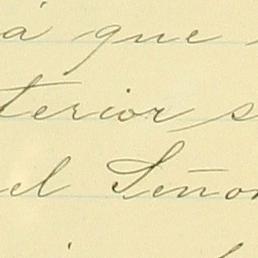 á que
terior s
el Señor